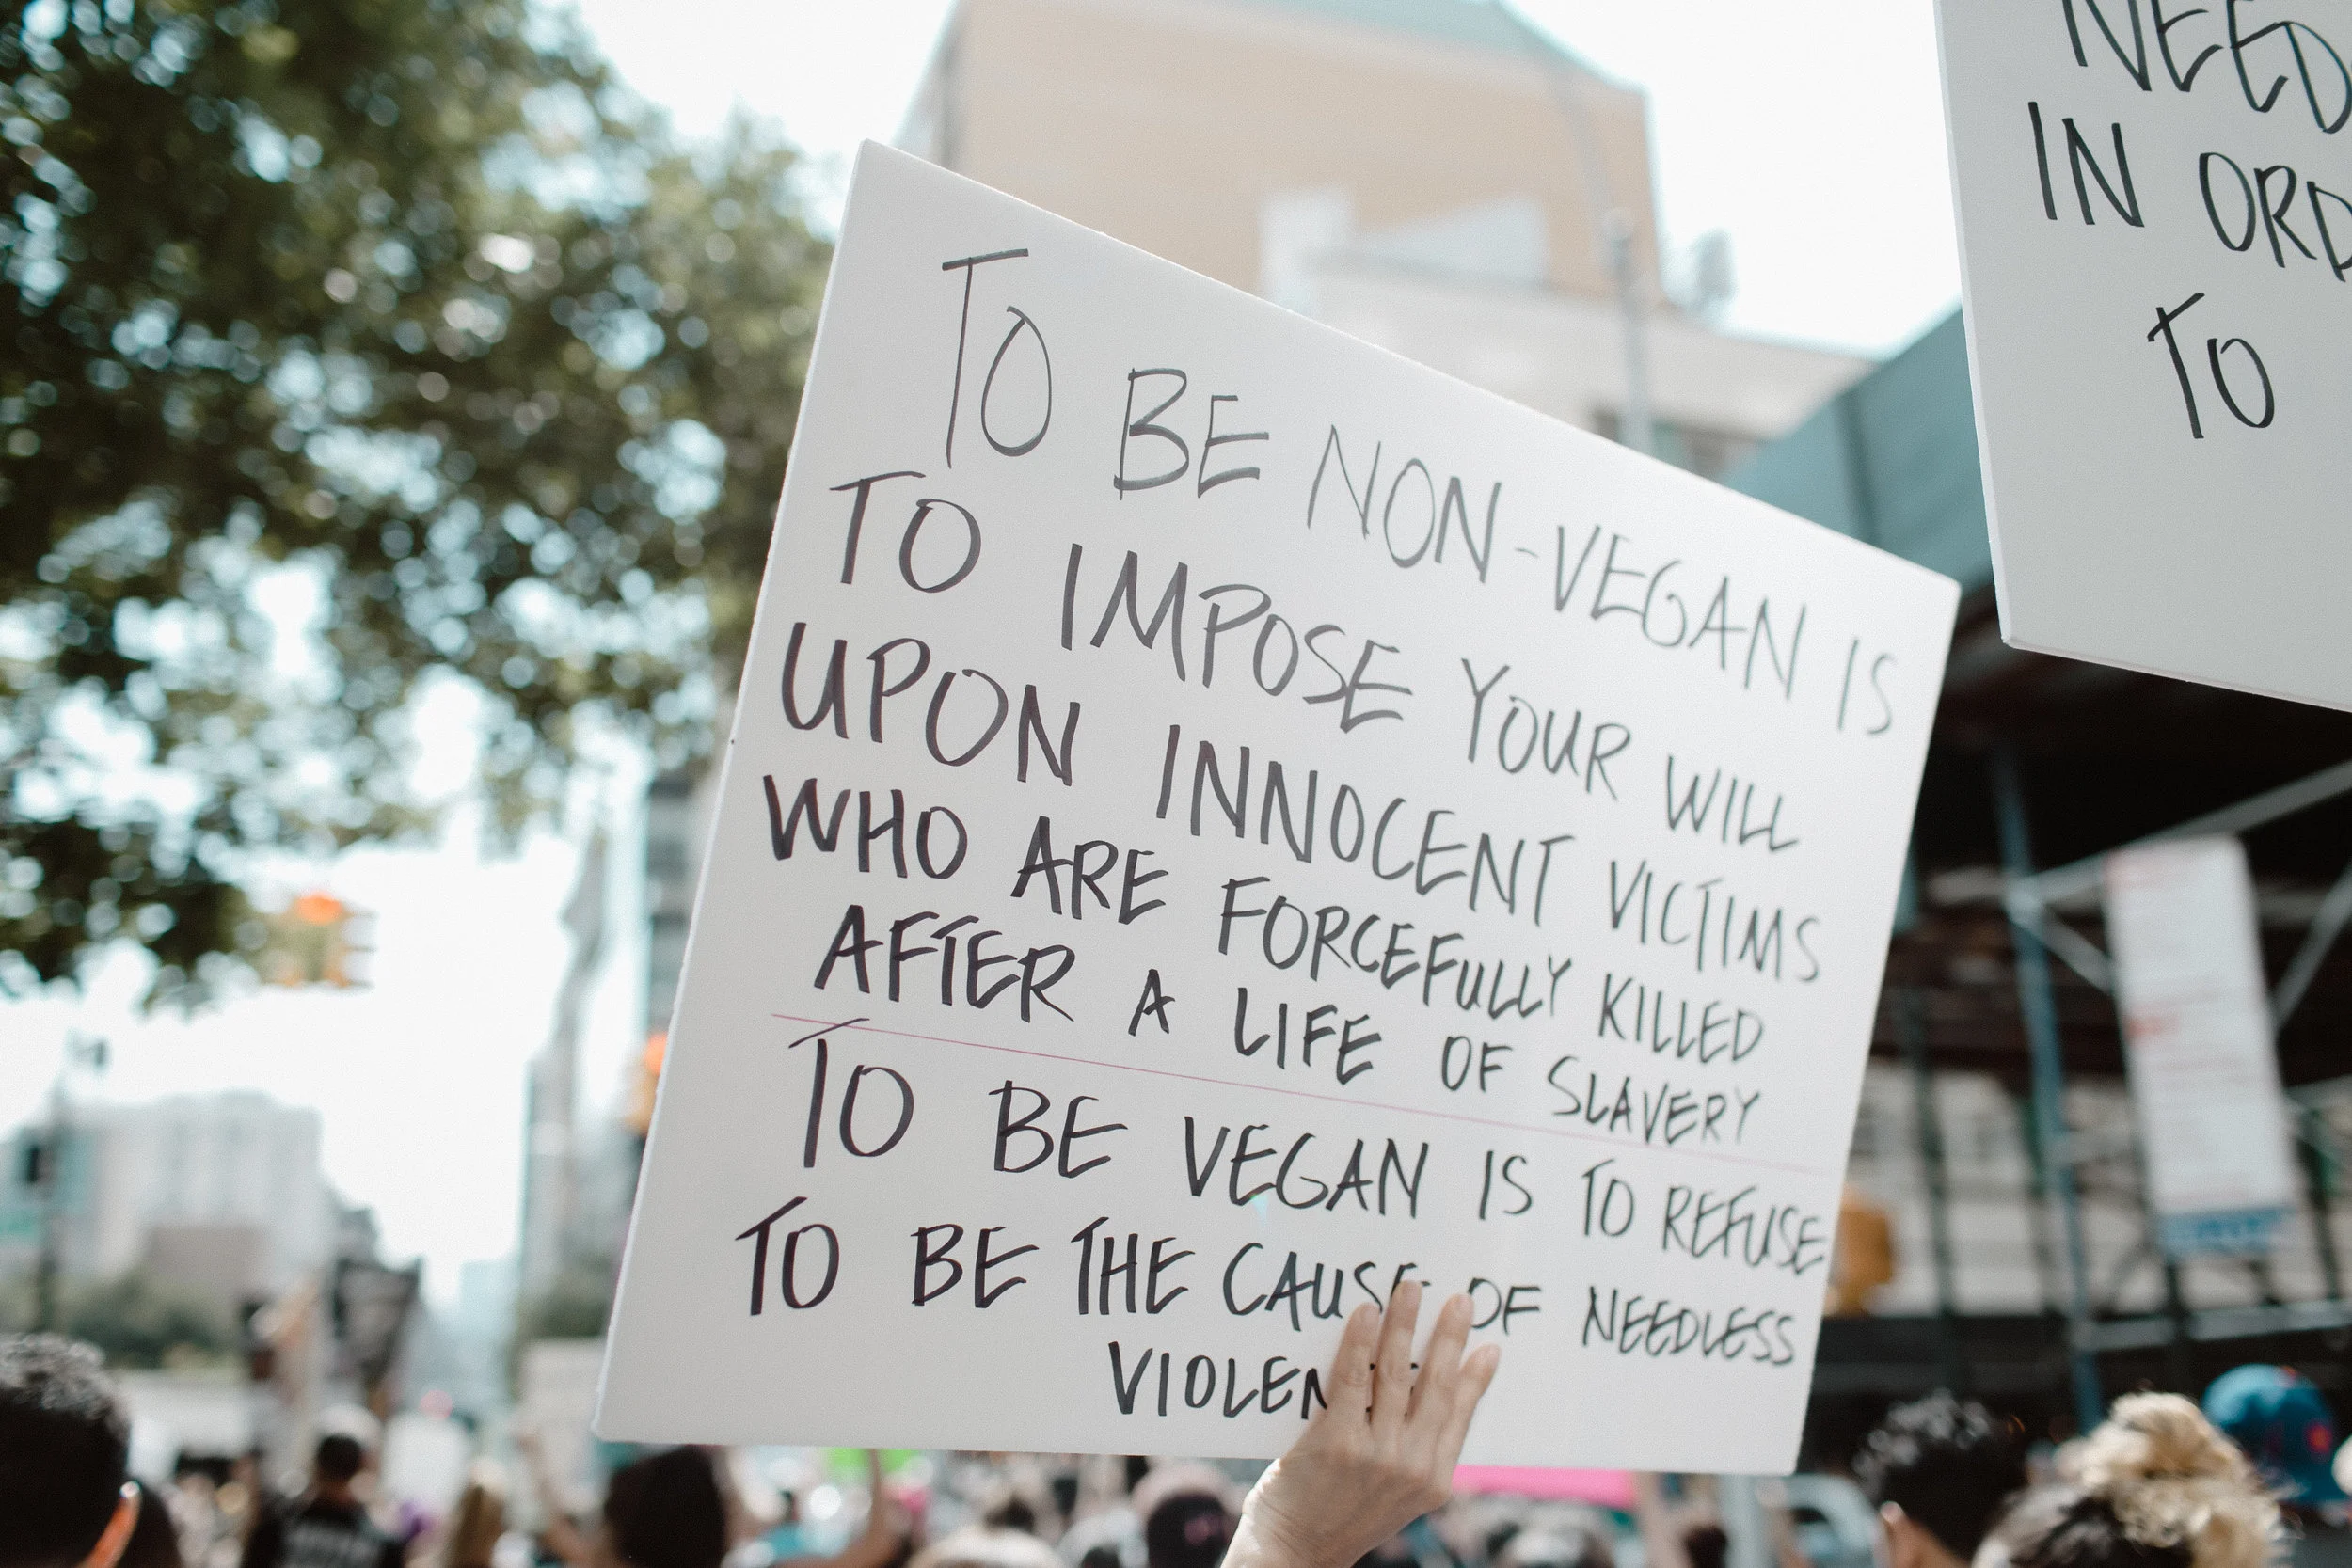 TO BE NON-VEGAN IS
TO IMPOSE YOUR WILL
UPON INNOCENT VICTIMS
WHO ARE FORCEFULLY KILLED
AFTER A LIFE OF SLAVERY
TO BE VEGAN IS TO REFUSE
TO BE THE CAUSE OF NEEDLESS
VIOLEN
NEED
IN ORD
TO